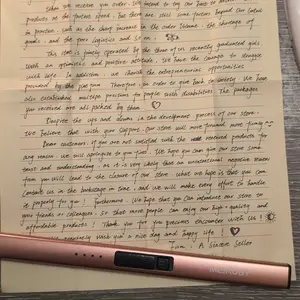 when we receive your order. We intend to try our best to
products as the fastest speed. But there are still some factors beyond our control
in practice, such as the sharp increase in the order volume, the shortage of
goods, and the poor logistics and so on.
This store is jointly operated by the three of us recently graduated girls
with an optimistic and positive attitude. We have the courage to
with life. In addition, we cherish the entrepreneurial opportunities
provided by the platform. Therefore in order to give back to society. We have
also established multiple positions for people with disabilities. The packages
you received are all packed by them.
Despite the ups and downs in the development process of our store.
We believe that with your support, our store will move forward more firmly
Dear customers, if you are not satisfied with the received products for
any reason, we will apologize to you first. We hope you can give our store some
trust and understanding, as it is very likely that an unintentional negative review
from you will lead to the closure of our store. What we hope is that you can
contact us in the backstage in time, and we will make every effort to handle
it properly for you! Furthermore, We hope that you can introduce our store to
your friends or colleagues, so that more people can enjoy our high-quality and
affordable products! Thank you for your precious encounter with us!
wish you a nice day and happy life!
From: A Sincere Seller